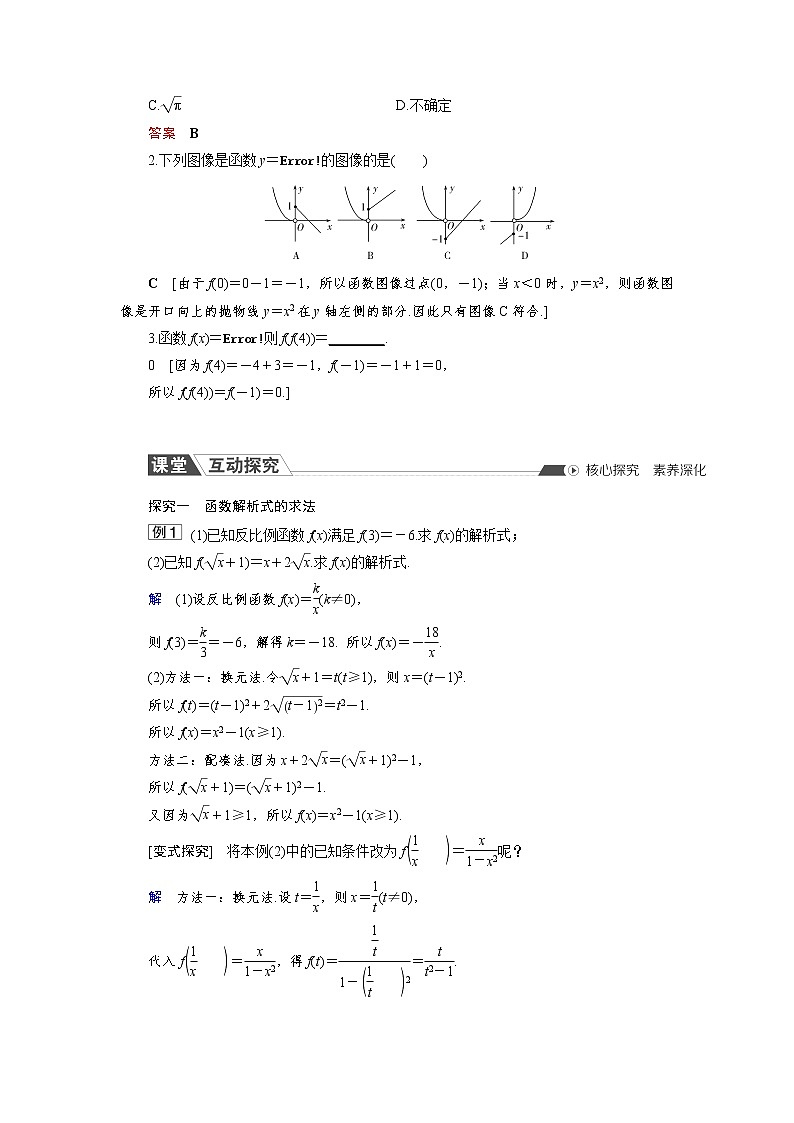 C.√π D.不确定
答案 B
2.下列图像是函数 y=Error!的图像的是( )
y 1 O x y 1 O x y O x −1 y O x −1
A B C D
C [由于 f(0)=0-1=-1，所以函数图像过点(0，-1)；当 x<0 时，y=x²，则函数图
像是开口向上的抛物线 y=x² 在 y 轴左侧的部分.因此只有图像 C 符合.]
3.函数 f(x)=Error!则 f(f(4))=________.
0 [因为 f(4)=-4+3=-1，f(-1)=-1+1=0，
所以 f(f(4))=f(-1)=0.]
课堂 互动探究 核心探究 素养深化
探究一 函数解析式的求法
例1 (1)已知反比例函数 f(x)满足 f(3)=-6.求 f(x)的解析式；
(2)已知 f(√x+1)=x+2√x.求 f(x)的解析式.
解 (1)设反比例函数 f(x)=k/x(k≠0)，
则 f(3)=k/3=-6，解得 k=-18. 所以 f(x)=-18/x.
(2)方法一：换元法.令√x+1=t(t≥1)，则 x=(t-1)².
所以 f(t)=(t-1)²+2√((t-1)²)=t²-1.
所以 f(x)=x²-1(x≥1).
方法二：配凑法.因为 x+2√x=(√x+1)²-1，
所以 f(√x+1)=(√x+1)²-1.
又因为√x+1≥1，所以 f(x)=x²-1(x≥1).
[变式探究] 将本例(2)中的已知条件改为 f(1/x)=x/(1-x²)呢？
解 方法一：换元法.设 t=1/x，则 x=1/t(t≠0)，
代入 f(1/x)=x/(1-x²)，得 f(t)=(1/t)/(1-(1/t)²)=t/(t²-1).